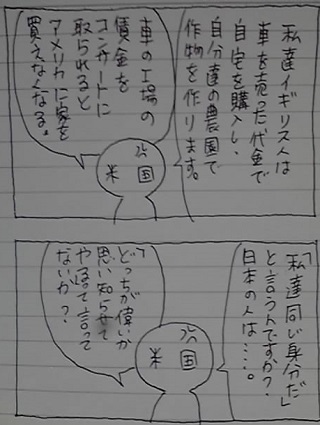 私達イギリス人は
車を売った代金で
自宅を購入し、
自分達の農園で
作物を作ります。
車の工場の
賃金を
コンサートに
取られると
アメリカに家を
買えなくなる。
米国
「私達同じ身分だ」
と言うんですか?
日本の人は…。
「どっちが偉いか
思い知らせて
やる」って言って
ないか?
米国